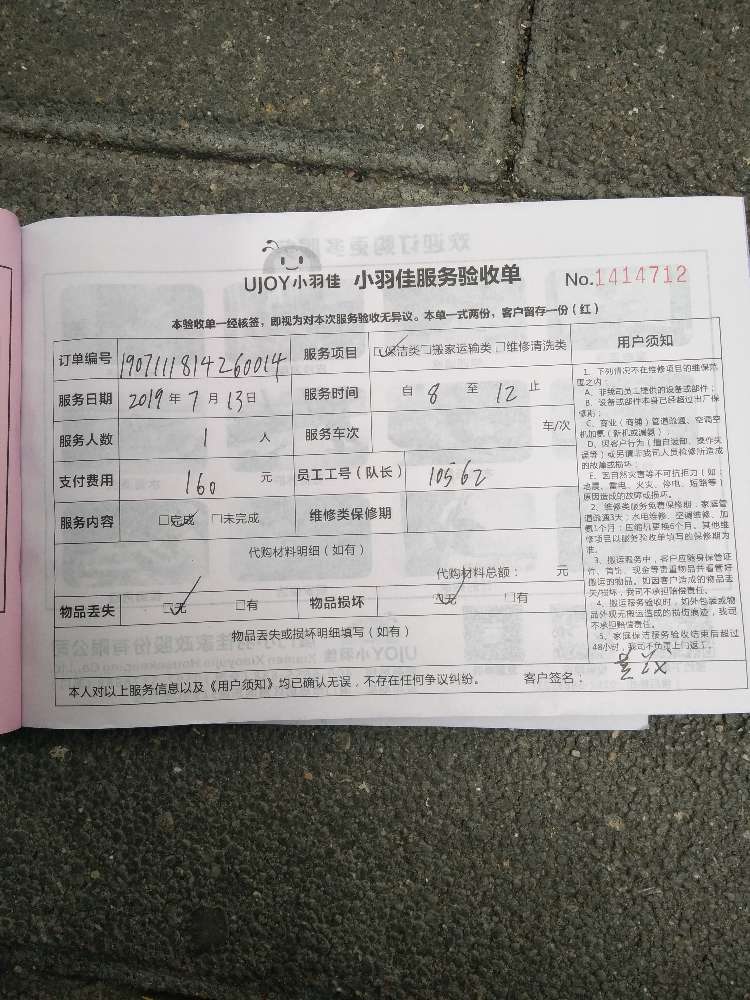 UJOY小羽佳 小羽佳服务验收单 No.1414712
本验收单一经核签，即视为对本次服务验收无异议。本单一式两份，客户留存一份（红）
订单编号 1907111814260014 服务项目 ☑保洁类□搬家运输类□维修清洗类
服务日期 2019年7月13日 服务时间 自 8 至 12 止
服务人数 1 人 服务车次 车/次
支付费用 160 元 员工工号（队长） 10562
服务内容 ☑完成 □未完成 维修类保修期
代购材料明细（如有）
代购材料总额： 元
物品丢失 ☑无 □有 物品损坏 ☑无 □有
物品丢失或损坏明细填写（如有）
本人对以上服务信息以及《用户须知》均已确认无误，不存在任何争议纠纷。 客户签名：
用户须知
1、下列情况不在维修项目的维保范
围之内：
A、非我司员工提供的设备或部件；
B、设备或部件本身已经超过出厂保
修期；
C、商业（商铺）管道疏通、空调空
机加氟（新机或漏氟）；
D、因客户行为（擅自装卸、操作失
误等）或另请非我司人员检修所造成
的故障或损坏；
E、因自然灾害等不可抗拒力（如：
地震、雷电、火灾、停电、短路等）
原因造成的故障或损坏。
2、维修类服务免费保修期：家庭管
道疏通3天；水电维修、空调维修、加
氟1个月；压缩机更换6个月。其他维
修项目以服务验收单填写的保修期为
准。
3、搬运服务中，客户应随身保管证
件、首饰、现金等贵重物品并看管好
搬运的物品。如因客户造成的物品丢
失/损坏，我司不承担赔偿责任。
4、搬运服务验收时，如外包装或物
品外观无搬运造成的损伤痕迹，我司
不承担赔偿责任。
5、家庭保洁服务验收结束后超过
48小时，我司不负责上门返工。